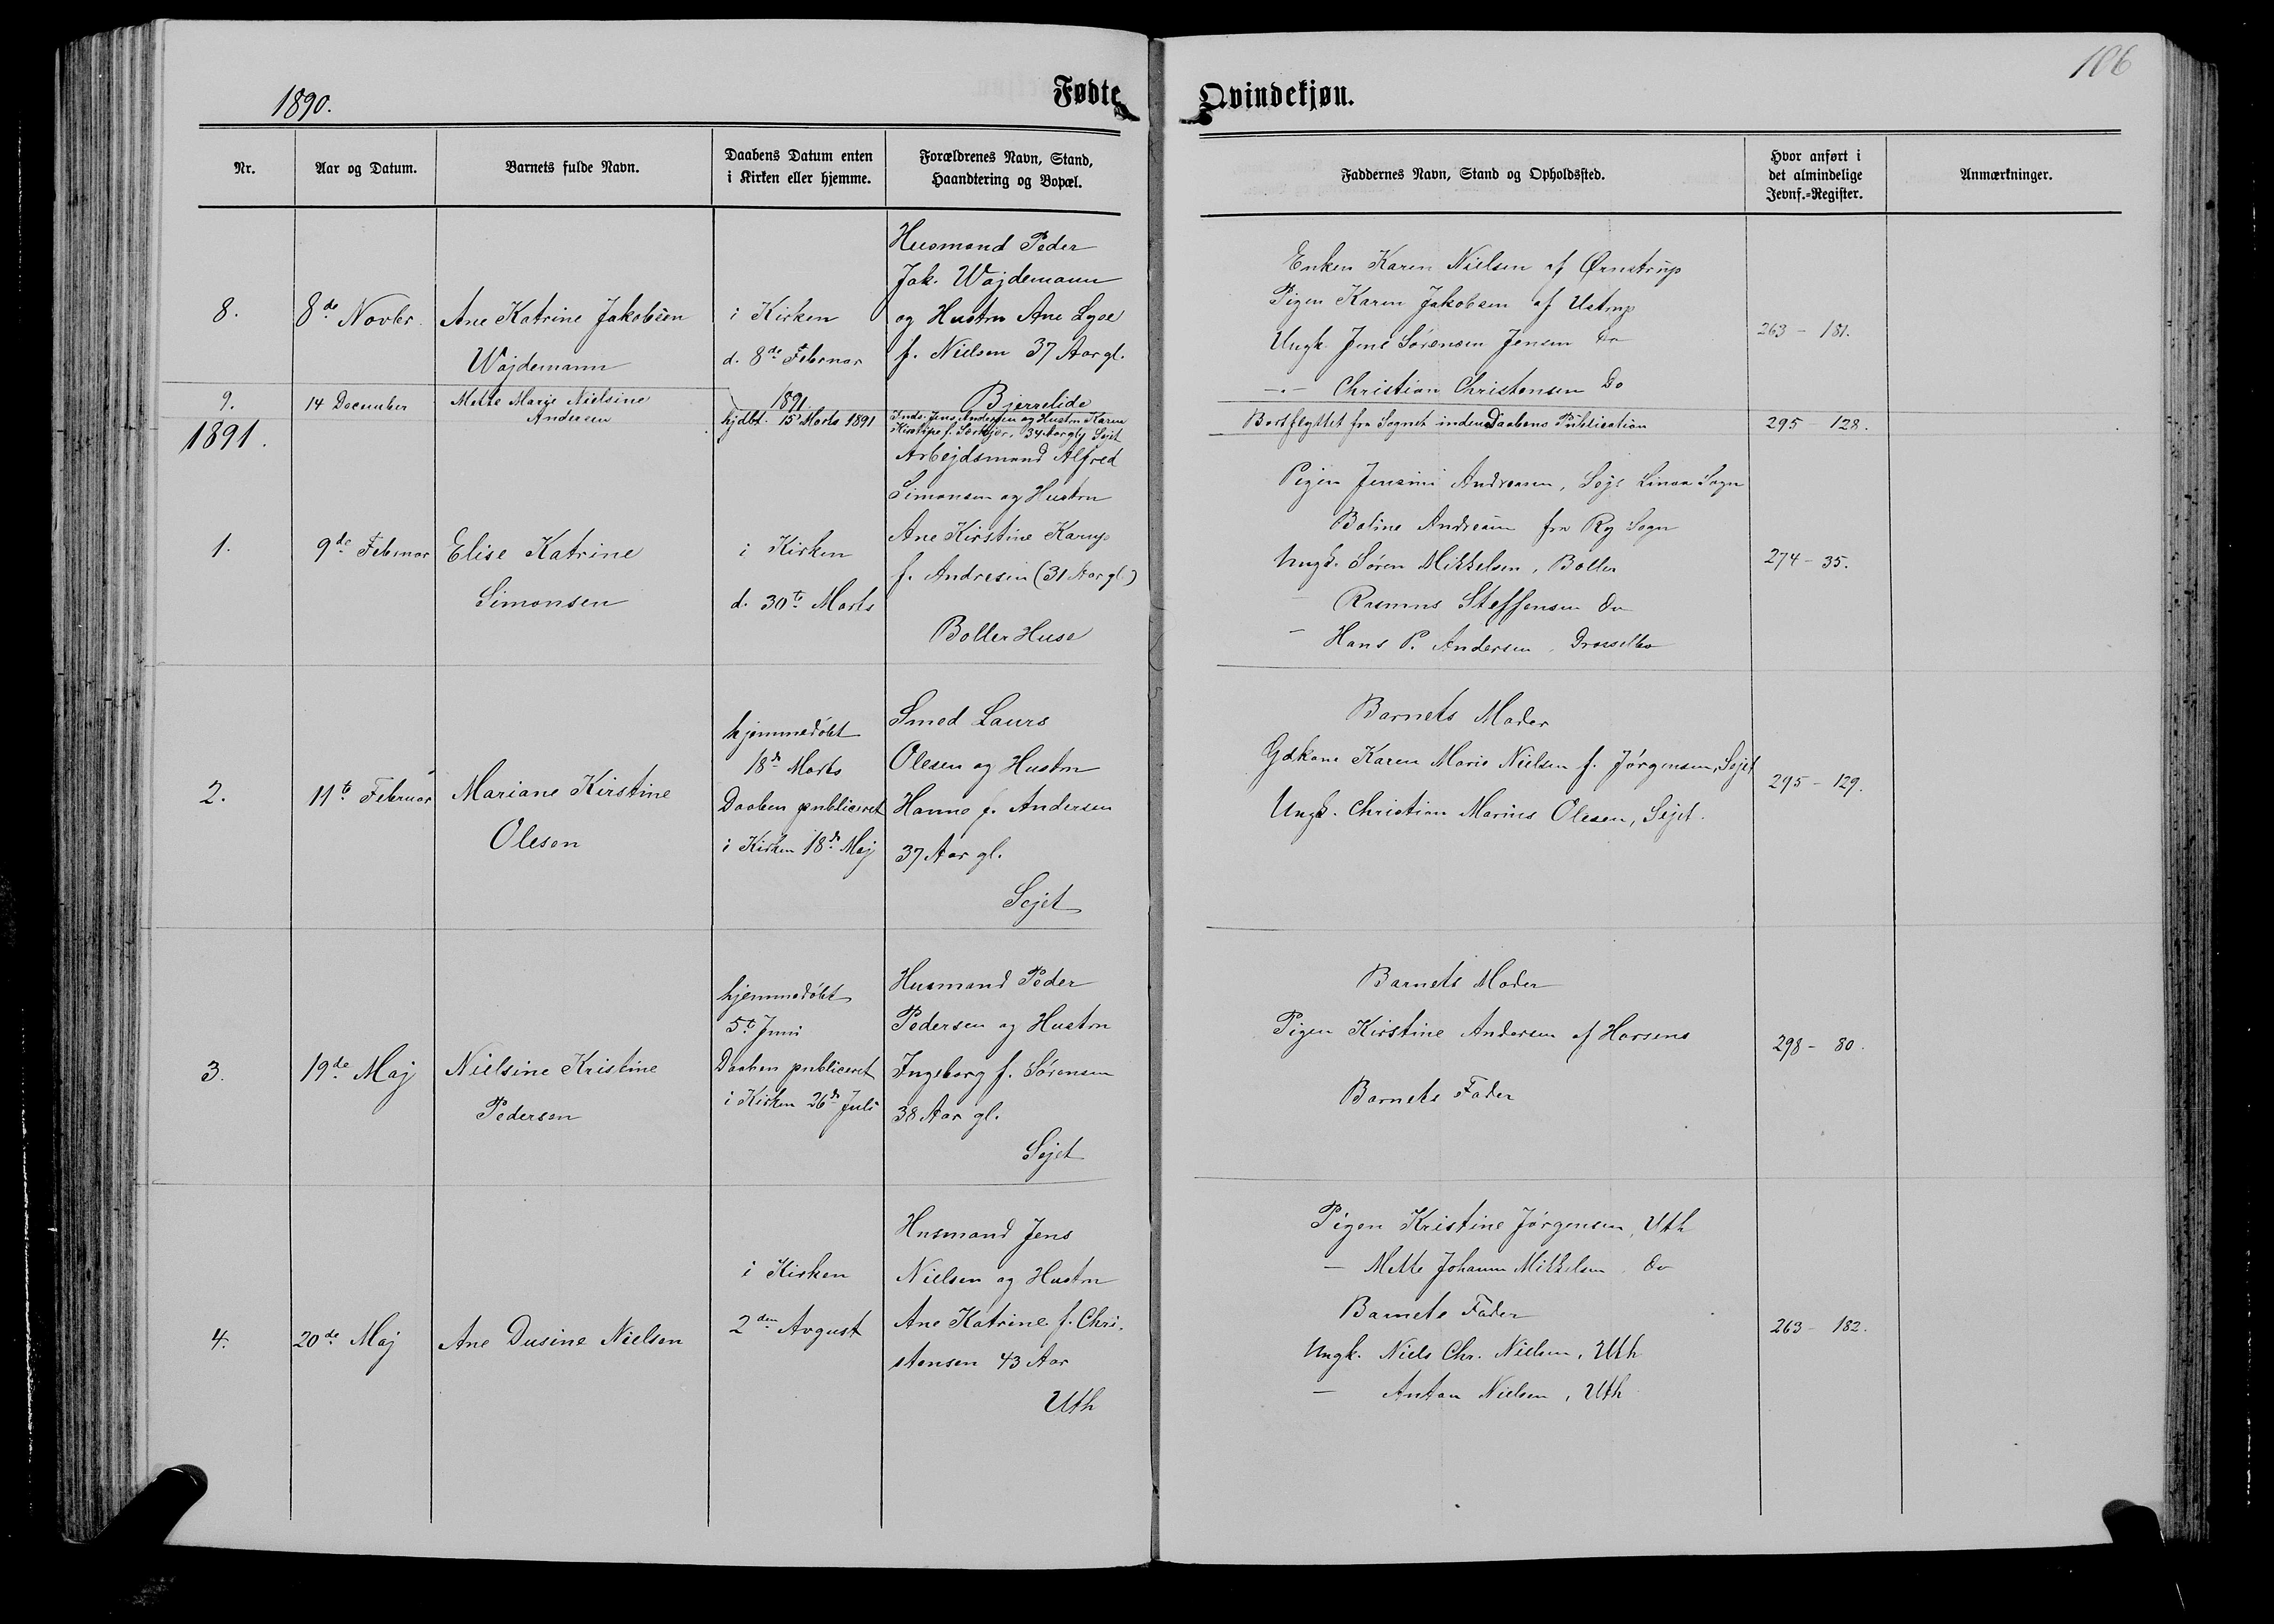 106
1890.
Fødte Qvindekjøn.
Nr.
Aar og Datum.
Barnets fulde Navn.
Daabens Datum enten
i Kirken eller hjemme.
Forældrenes Navn, Stand,
Haandtering og Bopæl.
Faddernes Navn, Stand og Opholdssted.
Hvor anført i
det almindelige
Jevnf.-Register.
Anmærkninger.
8.
8de Novbr.
Ane Katrine Jakobsen
Wajdemann
i Kirken
d. 8de Februar
1891
Husmand Peder
Jak. Wajdemann
og Hustru Ane Lyse
f. Nielsen 37 Aar gl.
Bjerrelide
Enken Karen Nielsen af Ørnstrup
Pigen Karen Jakobsen af Ustrup
Ungk. Jens Sørensen Jensen Do
-"- Christian Christensen Do
263 - 181.
9.
14 December
Mette Marie Nielsine
Andersen
hjdbt. 15 Marts 1891
Inds. Jens Andersen og Hustru Karen
Kirstine f. 34 Aar gl. Sejet
Bortflyttet fra Sognet inden Daabens Publication
295 - 128.
1891.
1.
9de Februar
Elise Katrine
Simonsen
i Kirken
d. 30te Marts
Arbejdsmand Alfred
Simonsen og Hustru
Ane Kirstine Karup
f. Andresen (31 Aar gl.)
Boller Huse
Pigen Jensine Andreasen, Sejs Linaa Sogn
Boline Andreasen fra Ry Sogn
Ungk. Søren Mikkelsen, Boller
- Rasmus Steffensen do
- Hans P. Andersen,
274 - 35.
2.
11te Februar
Mariane Kirstine
Olesen
hjemmedøbt
18de Marts
Daaben publiceret
i Kirken 18de Maj
Smed Laurs
Olesen og Hustru
Hanne f. Andersen
37 Aar gl.
Sejet
Barnets Moder
Gdkone Karen Marie Nielsen f. Jørgensen, Sejet
Ungk. Christian Marius Olesen, Sejet.
295 - 129.
3.
19de Maj
Nielsine Kristine
Pedersen
hjemmedøbt
5te Juni
Daaben publiceret
i Kirken 26de Juli
Husmand Peder
Pedersen og Hustru
Ingeborg f. Sørensen
38 Aar gl.
Sejet
Barnets Moder
Pigen Kirstine Andersen af Horsens
Barnets Fader
298 - 80.
4.
20de Maj
Ane Dusine Nielsen
i Kirken
2den Avgust
Husmand Jens
Nielsen og Hustru
Ane Katrine f. Chri-
stensen 43 Aar
Uth
Pigen Kristine Jørgensen, Uth
- Mette Johanne Mikkelsen, do
Barnets Fader
Ungk. Niels Chr. Nielsen, Uth
- Anton Nielsen, Uth
263 - 182.